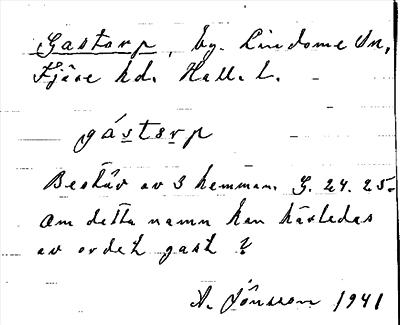 Gastorp, by. Lindome Sn,
Fjäre hd. Hall. l.
gástorp
Består av 3 hemman. G. 24. 25.
Om detta namn kan härledas
av ordet gast?
A. Jönsson 1941